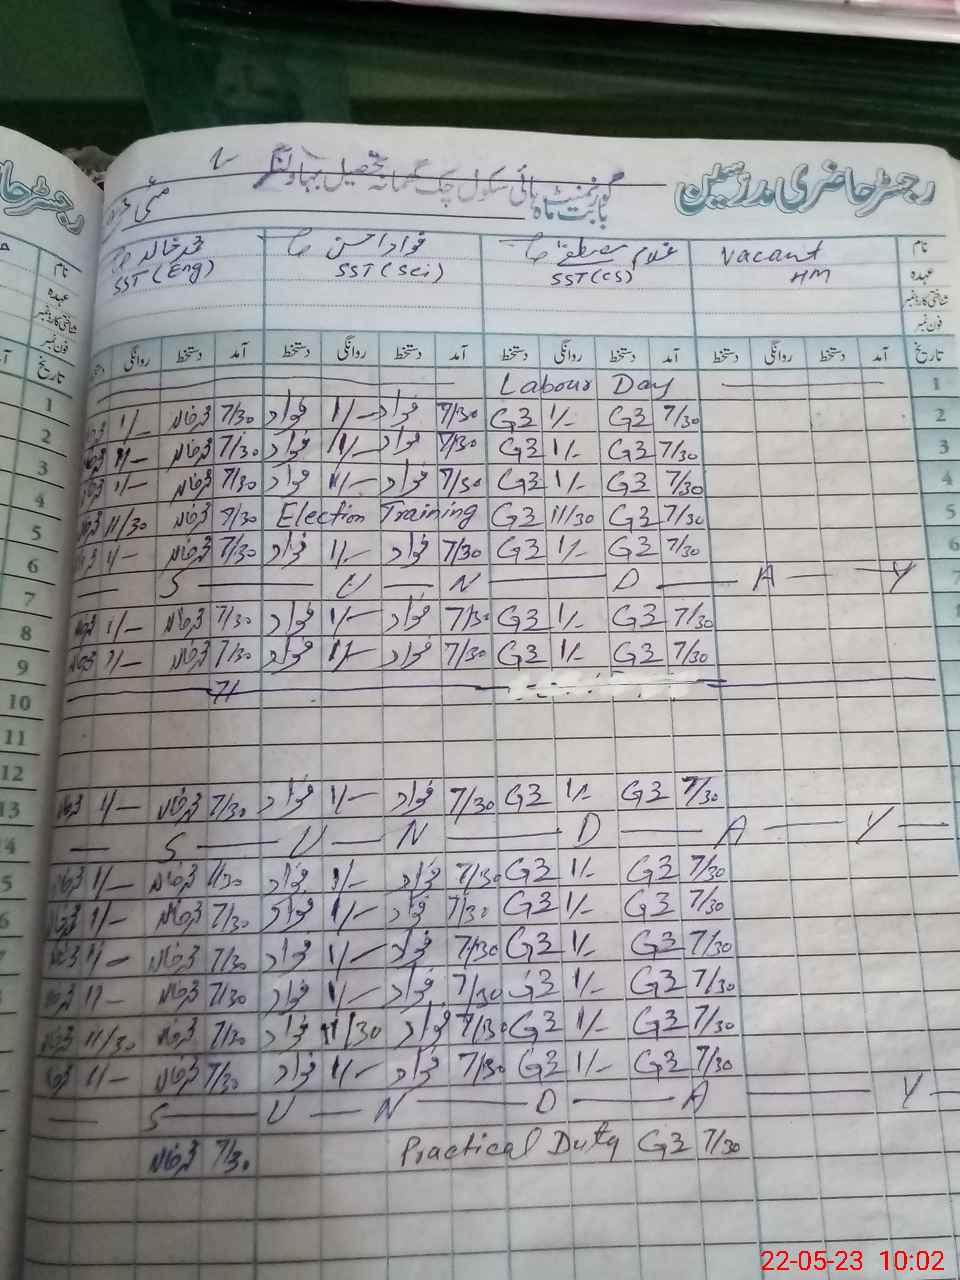 رجسٹر حاضری مدرسین
گورنمنٹ ہائی سکول چک گھمانہ تحصیل بہاولنگر
بابت ماہ مئی
نام Vacant غلام مصطفےٰ فواد احسن محمد خالد
عہدہ HM SST(CS) SST(Sci) SST(Eng)
شناختی کارڈ نمبر
فون نمبر
تاریخ آمد دستخط روانگی دستخط آمد دستخط روانگی دستخط آمد دستخط روانگی دستخط آمد دستخط روانگی
1 Labour Day
2 7/30 G3 1/- G3 7/30 فواد 1/- فواد 7/30 1/-
3 7/30 G3 1/- G3 7/30 فواد 1/- فواد 7/30 1/-
4 7/30 G3 1/- G3 7/30 فواد 1/- فواد 7/30 1/-
5 7/30 G3 11/30 G3 Election Training 7/30 11/30
6 7/30 G3 1/- G3 7/30 فواد 1/- فواد 7/30 1/-
7 S U N D A Y
8 7/30 G3 1/- G3 7/30 فواد 1/- فواد 7/30 1/-
9 7/30 G3 1/- G3 7/30 فواد 1/- فواد 7/30 1/-
10 7/
11
12
13 7/30 G3 1/- G3 7/30 فواد 1/- فواد 7/30 1/-
S U N D A Y
7/30 G3 1/- G3 7/30 فواد 1/- فواد 7/30 1/-
7/30 G3 1/- G3 7/30 فواد 1/- فواد 7/30 1/-
7/30 G3 1/- G3 7/30 فواد 1/- فواد 7/30 1/-
7/30 G3 1/- G3 7/30 فواد 1/- فواد 7/30 1/-
7/30 G3 1/- G3 7/30 فواد 11/30 فواد 7/30 11/30
7/30 G3 1/- G3 7/30 فواد 1/- فواد 7/30 1/-
S U N D A Y
7/30 G3 Practical Duty 7/30
22-05-23 10:02